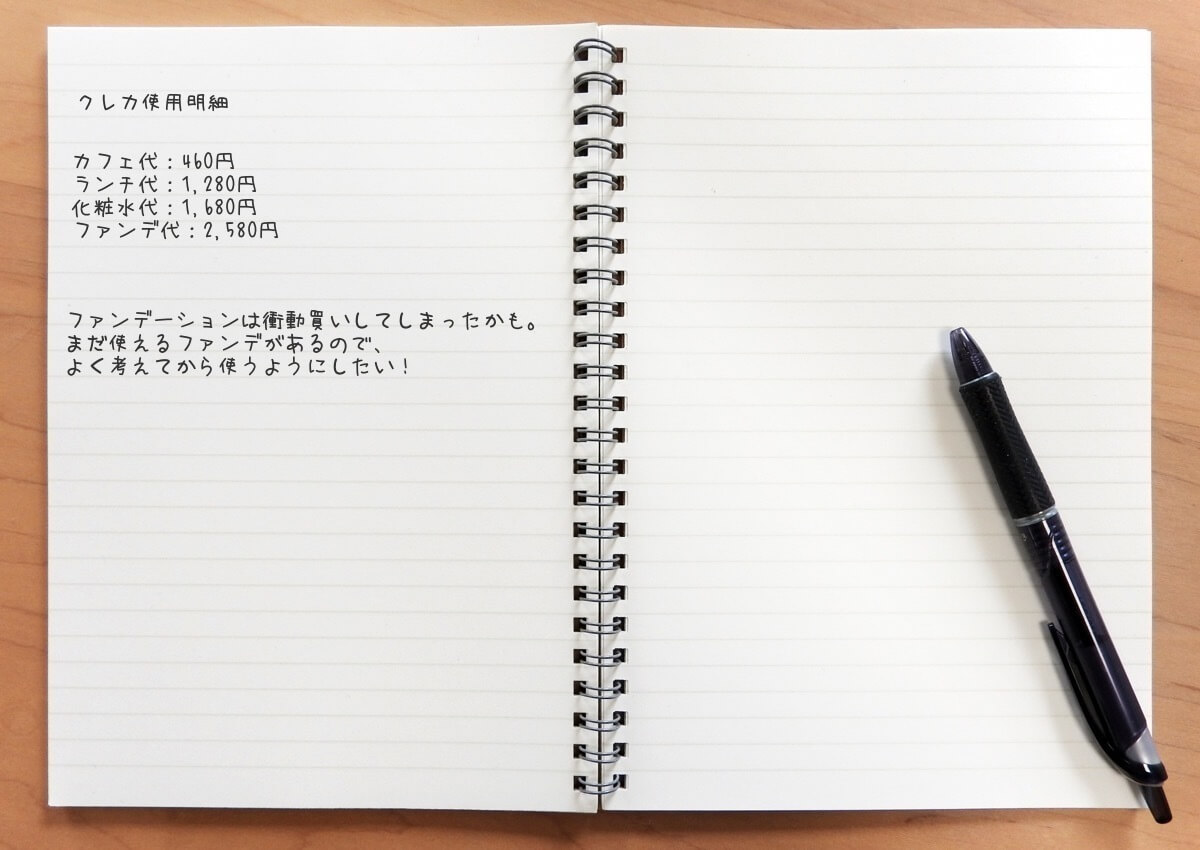 クレカ使用明細
カフェ代：460円
ランチ代：1,280円
化粧水代：1,680円
ファンデ代：2,580円
ファンデーションは衝動買いしてしまったかも。
まだ使えるファンデがあるので、
よく考えてから使うようにしたい！